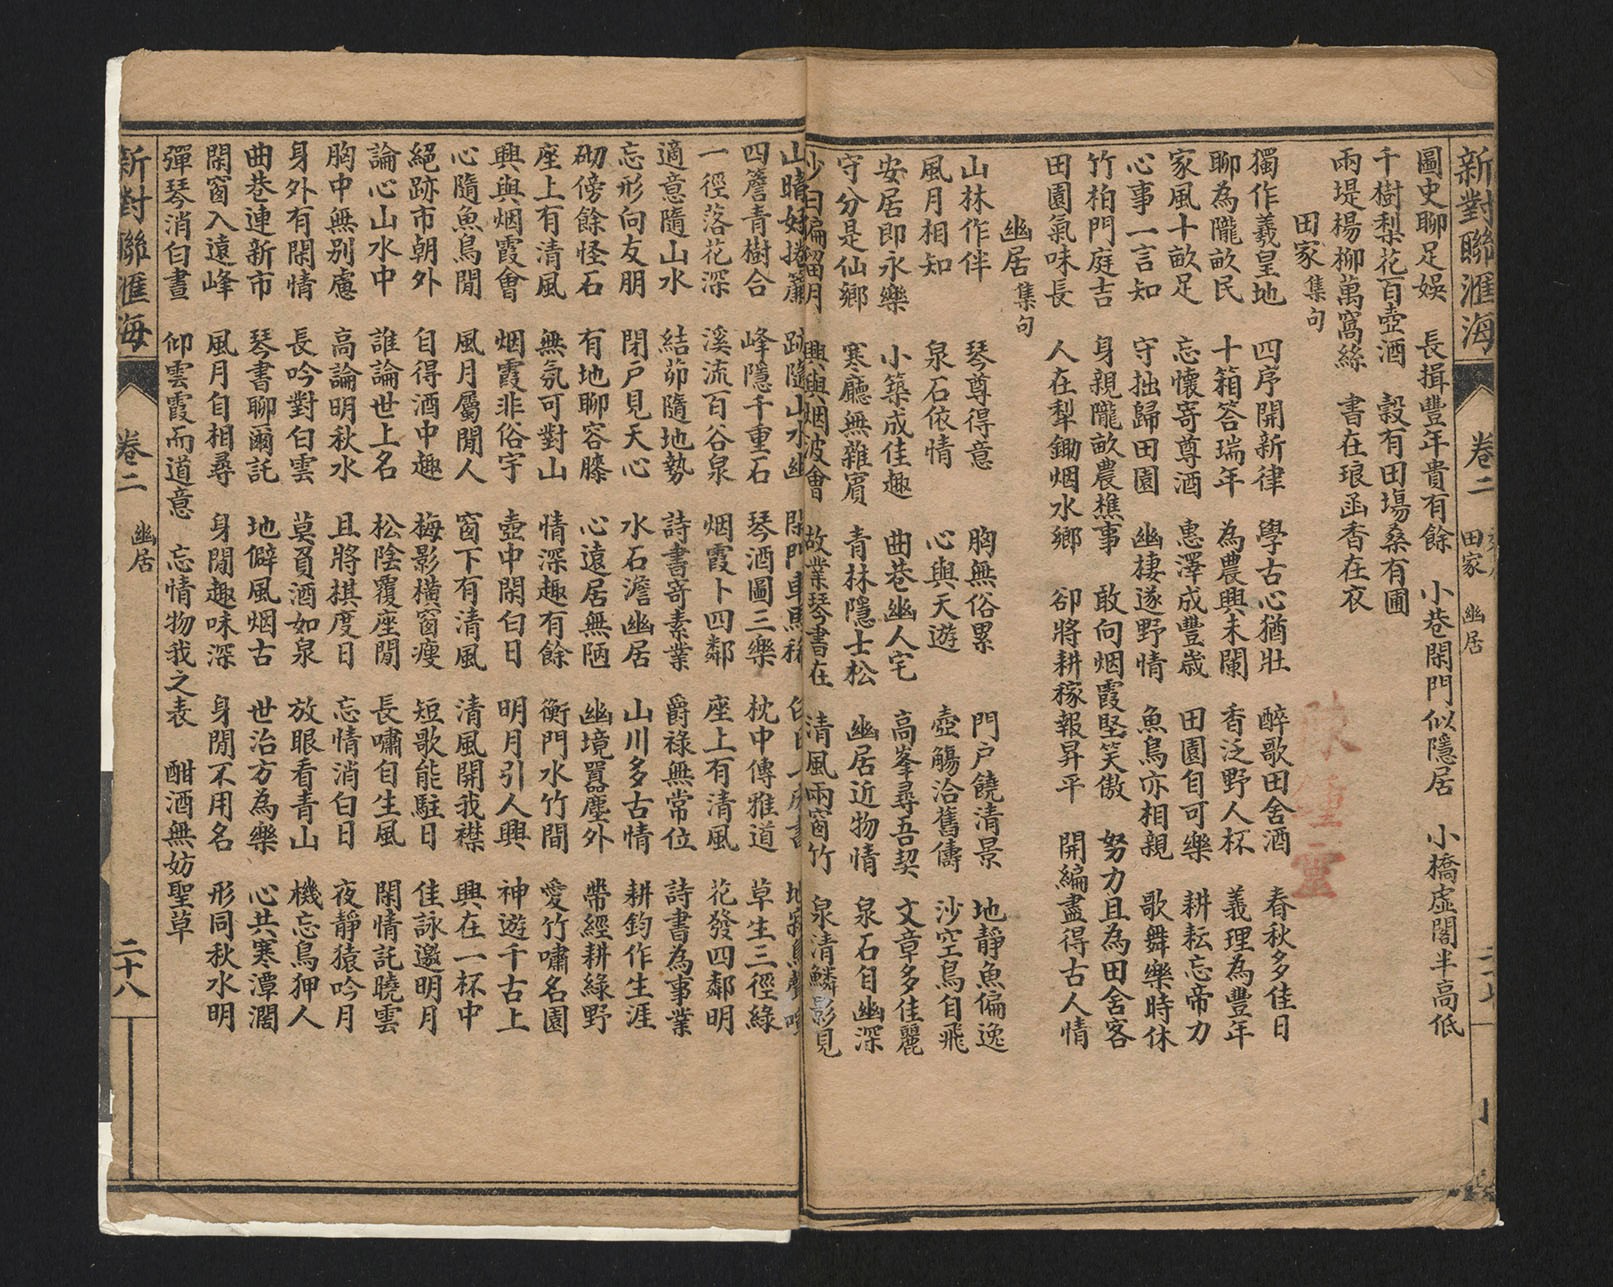 新對聯滙海 卷二 田家 幽居
圖史聊足娛 長揖豐年貴有餘 小巷閑門似隱居 小橋虛閣半高低
千樹梨花百壺酒 穀有田場桑有圃
兩堤楊柳萬窩絲 書在琅函香在衣
田家集句
獨作羲皇地 四序開新律 學古心猶壯 醉歌田舍酒 春秋多佳日
聊為隴畝民 十箱答瑞年 為農興未闌 香泛野人杯 義理為豐年
家風十畝足 忘懷寄尊酒 惠澤成豐歲 田園自可樂 耕耘忘帝力
心事一言知 守拙歸田園 幽棲遂野情 魚鳥亦相親 歌舞樂時休
竹柏門庭吉 身親隴畝農樵事 敢向烟霞堅笑傲 努力且為田舍客
田園氣味長 人在犁鋤烟水鄉 卻將耕稼報昇平 開編盡得古人情
幽居集句
山林作伴 琴尊得意 胸無俗累 門戶饒清景 地靜魚偏逸
風月相知 泉石依情 心與天遊 壺觴洽舊儔 沙空鳥自飛
安居即永樂 小築成佳趣 曲巷幽人宅 高峯尋吾契 文章多佳麗
守分是仙鄉 寒廳無雜賓 青林隱士松 幽居近物情 泉石自幽深
沙白偏留月 興與烟波會 故業琴書在 清風兩窗竹 泉清鱗影見
山晴好捲簾 跡隨山水幽 閑門車馬稀
四簷青樹合 峰隱千重石 琴酒圖三樂 枕中傳雅道 草生三徑綠
一徑落花深 溪流百谷泉 烟霞卜四鄰 座上有清風 花發四鄰明
適意隨山水 結茆隨地勢 詩書寄素業 爵祿無常位 詩書為事業
忘形向友朋 閉戶見天心 水石澹幽居 山川多古情 耕釣作生涯
砌傍餘怪石 有地聊容膝 心遠居無陋 幽境囂塵外 帶經耕綠野
座上有清風 無氛可對山 情深趣有餘 衡門水竹間 愛竹嘯名園
興與烟霞會 烟霞非俗宇 壺中閑白日 明月引人興 神遊千古上
心隨魚鳥閒 風月屬閒人 窗下有清風 清風開我襟 興在一杯中
絕跡市朝外 自得酒中趣 梅影橫窗瘦 短歌能駐日 佳詠邀明月
論心山水中 誰論世上名 松陰覆座閒 長嘯自生風 閑情託曉雲
胸中無別慮 高論明秋水 且將棋度日 忘情消白日 夜靜猿吟月
身外有閑情 長吟對白雲 莫買酒如泉 放眼看青山 機忘鳥狎人
曲巷連新市 琴書聊爾託 地僻風烟古 世治方為樂 心共寒潭濶
閑窗入遠峰 風月自相尋 身閒趣味深 身閒不用名 形同秋水明
彈琴消白晝 仰雲霞而道意 忘情物我之表 酣酒無妨聖草
新對聯滙海 卷二 幽居 二十八